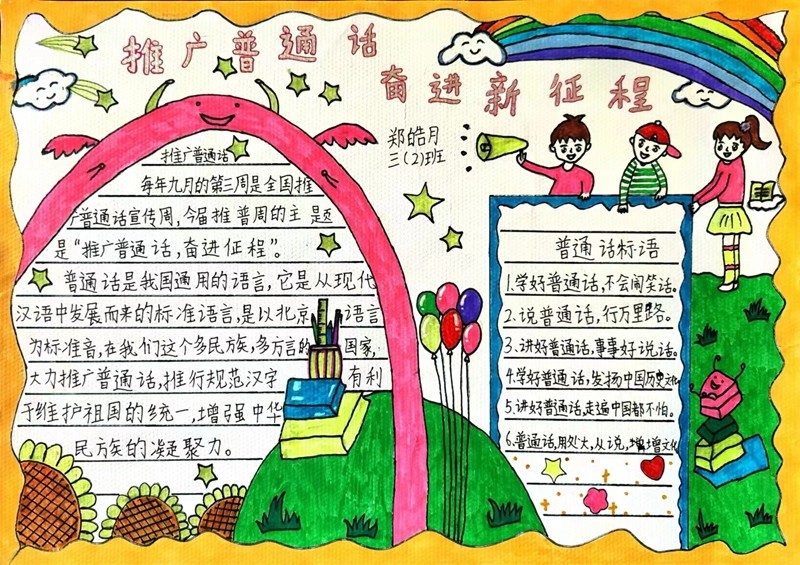 推广普通话
奋进新征程
郑皓月
三(2)班
推广普通话
每年九月的第三周是全国推
广普通话宣传周,今届推普周的主题
是“推广普通话,奋进征程”。
普通话是我国通用的语言,它是从现代
汉语中发展而来的标准语言,是以北京语言
为标准音,在我们这个多民族,多方言的国家,
大力推广普通话,推行规范汉字有利
于维护祖国的统一,增强中华
民族的凝聚力。
普通话标语
1.学好普通话,不会闹笑话。
2.说普通话,行万里路。
3.讲好普通话,事事好说话。
4.学好普通话,发扬中国历史文化
5.讲好普通话,走遍中国都不怕。
6.普通话,用处大,从说,增增文化